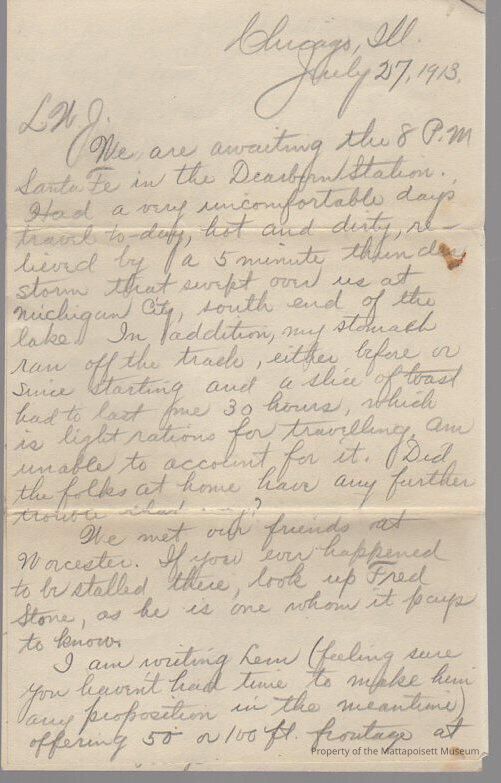 Chicago, Ill.
July 27, 1913.
L W J.
We are awaiting the 8 P.M
Santa Fe in the Dearborn Station.
Had a very uncomfortable days
travel to-day, hot and dirty, re-
lieved by a 5 minute thunder
storm that swept over us at
Michigan City, south end of the
lake. In addition, my stomach
ran off the track, either before or
since starting and a slice of toast
had to last me 30 hours, which
is light rations for travelling. Am
unable to account for it. Did
the folks at home have any further
trouble
We met our friends at
Worcester. If you ever happened
to be stalled there, look up Fred
Stone, as he is one whom it pays
to know.
I am writing Lem (feeling sure
you haven't had time to make him
any proposition in the meantime)
offering 50 or 100 ft. frontage at
Property of the Mattapoisett Museum